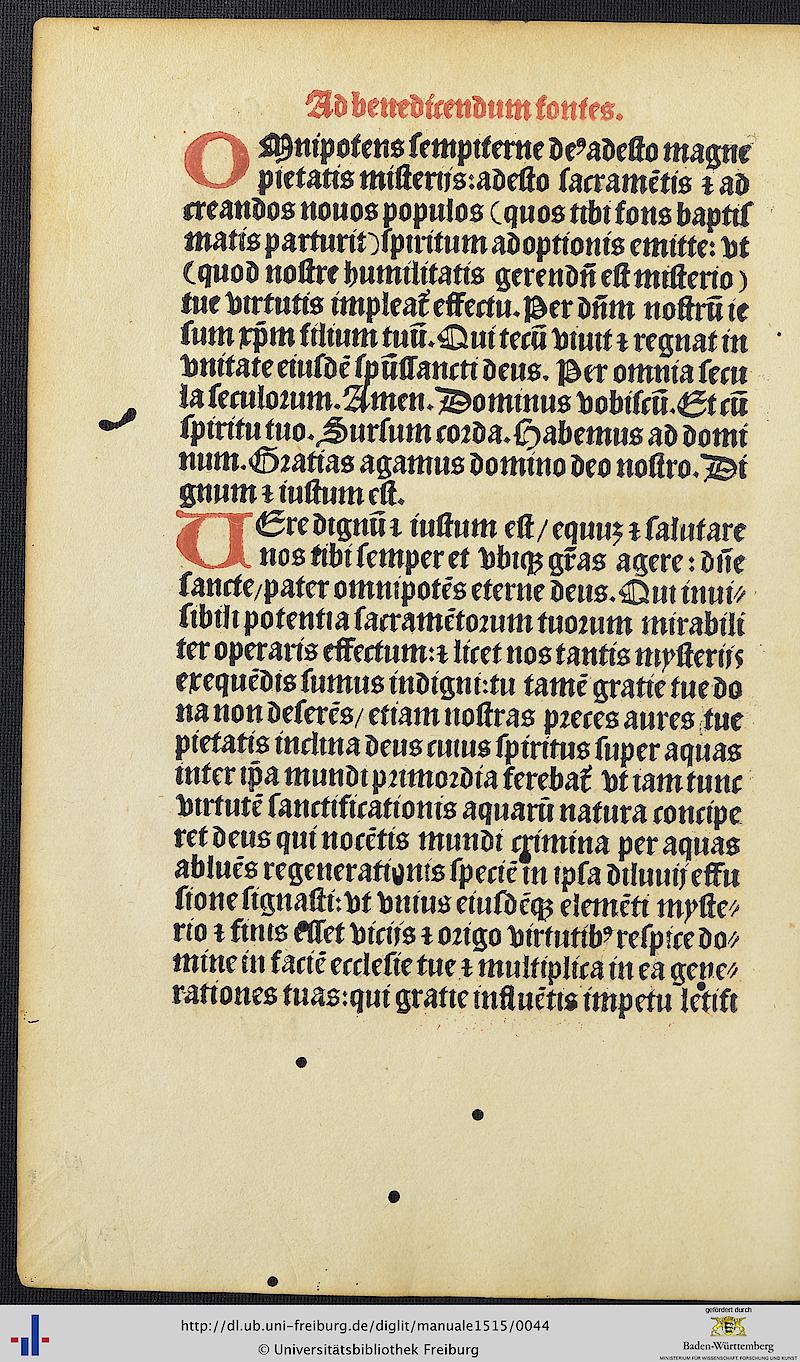 Ad benedicendum fontes.
OMnipotens sempiterne deꝰ adesto magne
pietatis misterijs: adesto sacramētis ⁊ ad
creandos nouos populos (quos tibi fons baptis
matis parturit) spiritum adoptionis emitte: vt
(quod nostre humilitatis gerendū est misterio)
tue virtutis impleat᷑ effectu. Per dn̄m nostrū ie
sum xp̄m filium tuū. Qui tecū viuit ⁊ regnat in
vnitate eiusdē spūssancti deus. Per omnia secu
la seculorum. Amen. Dominus vobiscū. Et cū
spiritu tuo. Sursum corda. Habemus ad domi
num. Gratias agamus domino deo nostro. Di
gnum ⁊ iustum est.
UEre dignū ⁊ iustum est / equuʒ ⁊ salutare
nos tibi semper et vbiqꝫ gr̄as agere: dn̄e
sancte / pater omnipotēs eterne deus. Qui inui⸗
sibili potentia sacramētorum tuorum mirabili
ter operaris effectum: ⁊ licet nos tantis mysterijs
exequēdis sumus indigni: tu tamē gratie tue do
na non deserēs / etiam nostras preces aures tue
pietatis inclina deus cuius spiritus super aquas
inter ip̄a mundi primordia ferebat᷑ vt iam tunc
virtutē sanctificationis aquarū natura concipe
ret deus qui nocētis mundi crimina per aquas
abluēs regenerationis speciē in ipsa diluuij effu
sione signasti: vt vnius eiusdēqꝫ elemēti myste⸗
rio ⁊ finis esset vicijs ⁊ origo virtutibꝰ respice do⸗
mine in faciē ecclesie tue ⁊ multiplica in ea gene⸗
rationes tuas: qui gratie influētis impetu letifi
http://dl.ub.uni-freiburg.de/diglit/manuale1515/0044
© Universitätsbibliothek Freiburg
gefördert durch
Baden-Württemberg
MINISTERIUM FÜR WISSENSCHAFT, FORSCHUNG UND KUNST